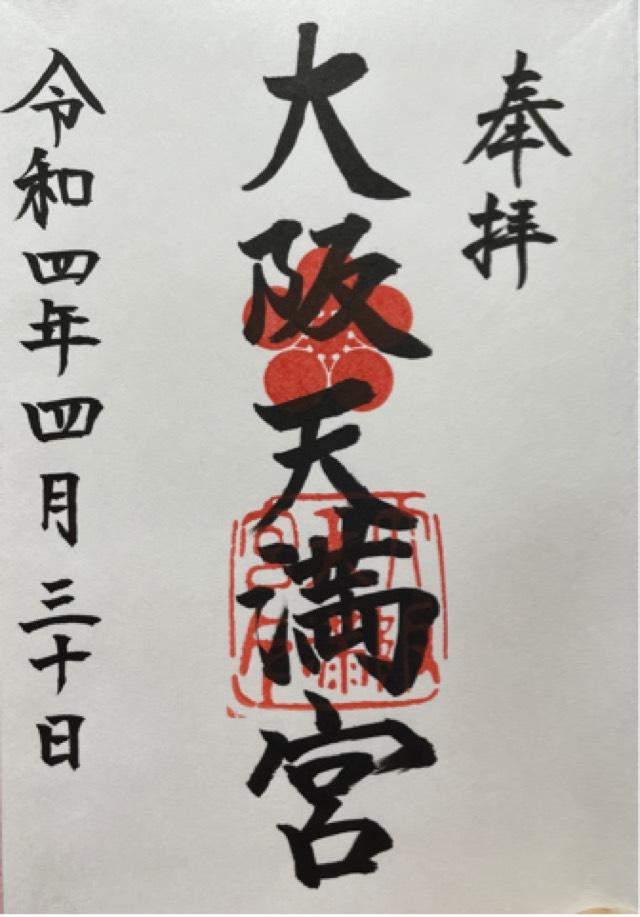 奉拝
大阪天満宮
令和四年四月三十日